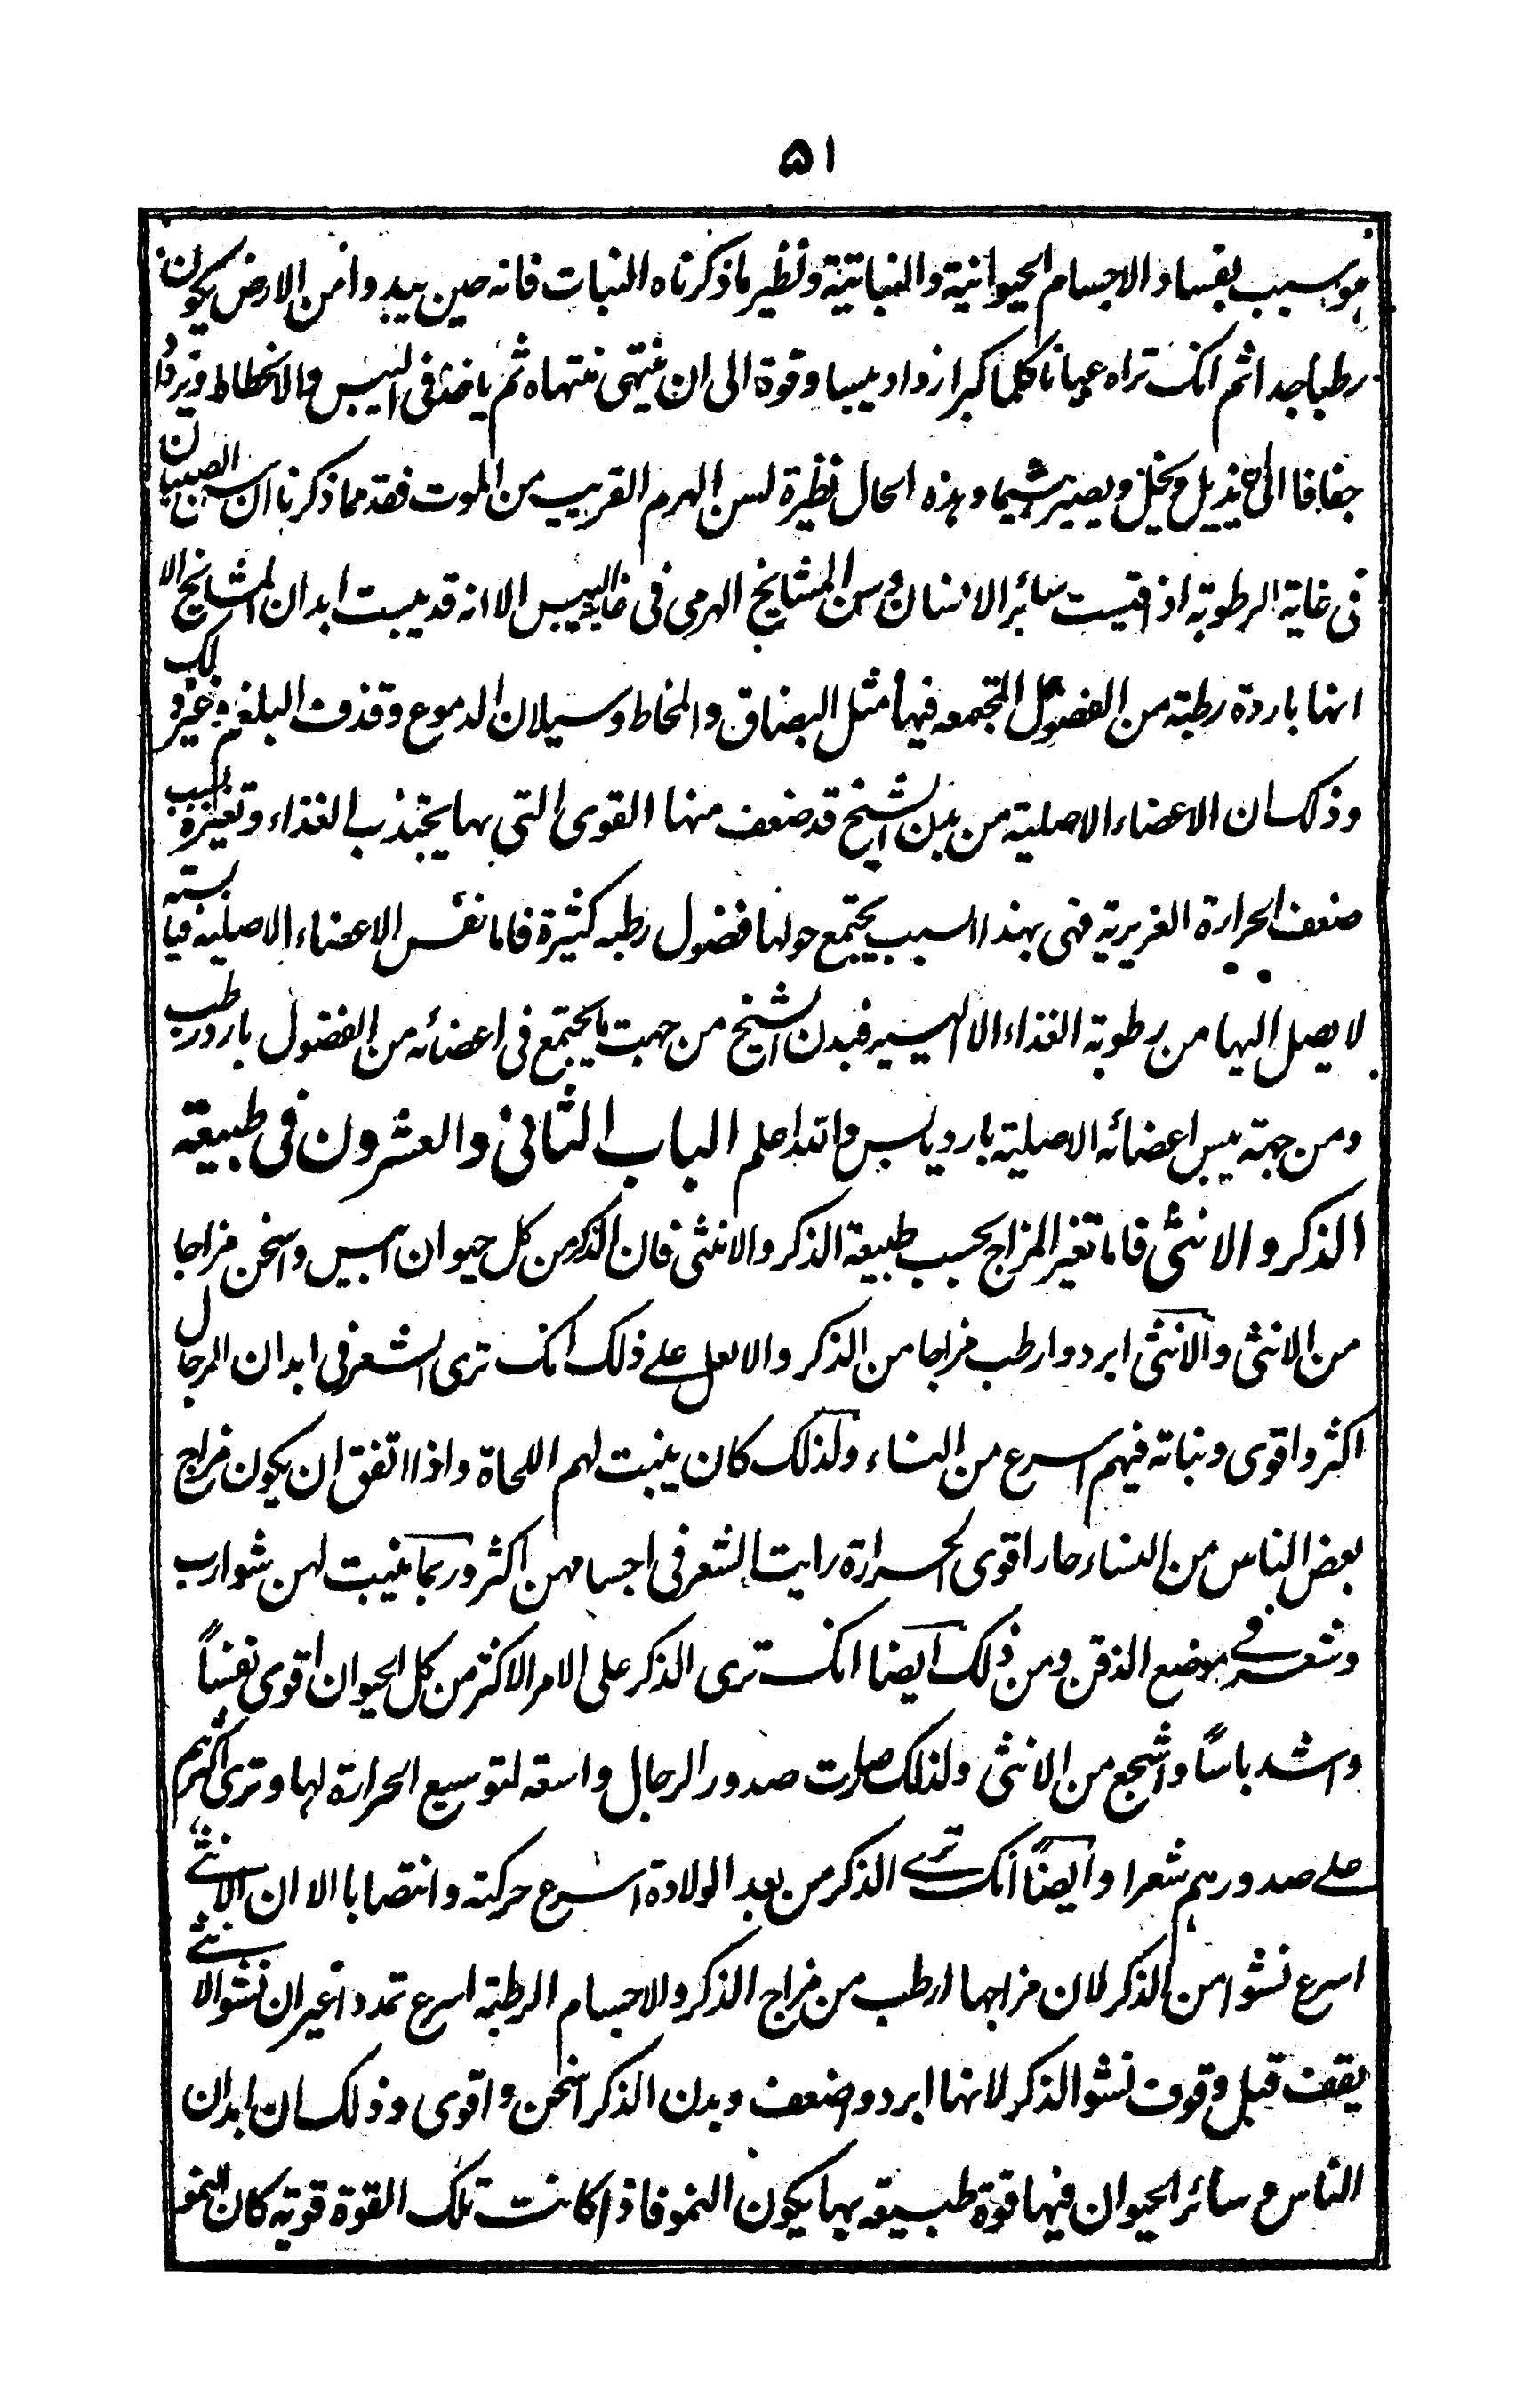 ٥١
هو سبب بفساد الاجسام الحيوانية والنباتية ونظير ما ذكرناه النبات فانه حين يبدوا من الارض يكون
رطبا جدا ثم انك تراه عيانا كلما كبر ازداد يبسا وقوة الى ان ينتهى منتهاه ثم ياخذ فى اليبس والانحطاط ويزداد
جفافا الى يذبل ويصير هشيما وهذه الحال نظيرة لسن الهرم القريب من الموت فقد مما ذكرنا ان الصبيان
فى غاية الرطوبة اذ اقيست سائر الانسان وسن المشايخ الهرمى فى غاية اليبس الا انه قد يبست ابدان المشايخ الا
انها باردة رطبة من الفضول المجتمعه فيها مثل البصاق والمخاط وسيلان الدموع وقذف البلغم وغير ذلك
وذلك ان الاعضاء الاصلية من بدن الشيخ قد ضعف منها القوى التى بها يجتذب الغذاء وتغيره بسبب
ضعف الحرارة الغريزية فهى بهذا السبب يجتمع حولها فضول رطبه كثيرة فاما نفس الاعضاء الاصلية فيابسته
لا يصل اليها من رطوبة الغذاء الا اليسير فبدن الشيخ من جهت ما يجتمع فى اعضائه من الفضول بارد رطب
ومن جهة يبس اعضائه الاصلية بارد يابس والله اعلم الباب الثانى والعشرون فى طبيعة
الذكر والانثى فاما تغير المزاج بحسب طبيعة الذكر والانثى فان الذكر من كل حيوان ايبس واسخن مزاجا
من الانثى والانثى ابرد وارطب مزاجا من الذكر والا يعل على ذلك انك ترى الشعر فى ابدان الرجال
اكثر واقوى ونباته فيهم اسرع من النساء ولذلك كان ينبت لهم اللحاة واذا اتفق ان يكون مزاج
بعض الناس من النساء حارا قوى الحرارة رايت الشعر فى اجسامهن اكثر وربما ينبت لهن شوارب
وشعر فى موضع الذقن ومن ذلك ايضا انك ترى الذكر على الامر الاكثر من كل الحيوان اقوى نفسًا
واشد باسًا واشجع من الانثى ولذلك صارت صدور الرجال واسعه لتوسيع الحرارة لها وترى اكثرهم
على صدورهم شعرا وايضًا انك ترى الذكر من بعد الولادة اسرع حركته وانتصابا الا ان الانثى
اسرع نشوا من الذكر لان مزاجها ارطب من مزاج الذكر والاجسام الرطبة اسرع تمددا غير ان نشو الانثى
يقف قبل وقوف نشو الذكر لانها ابرد واضعف وبدن الذكر اسخن واقوى وذلك ان ابدان
الناس وسائر الحيوان فيها قوة طبيعية بها يكون النمو فاذا كانت تلك القوة قوية كان النمو